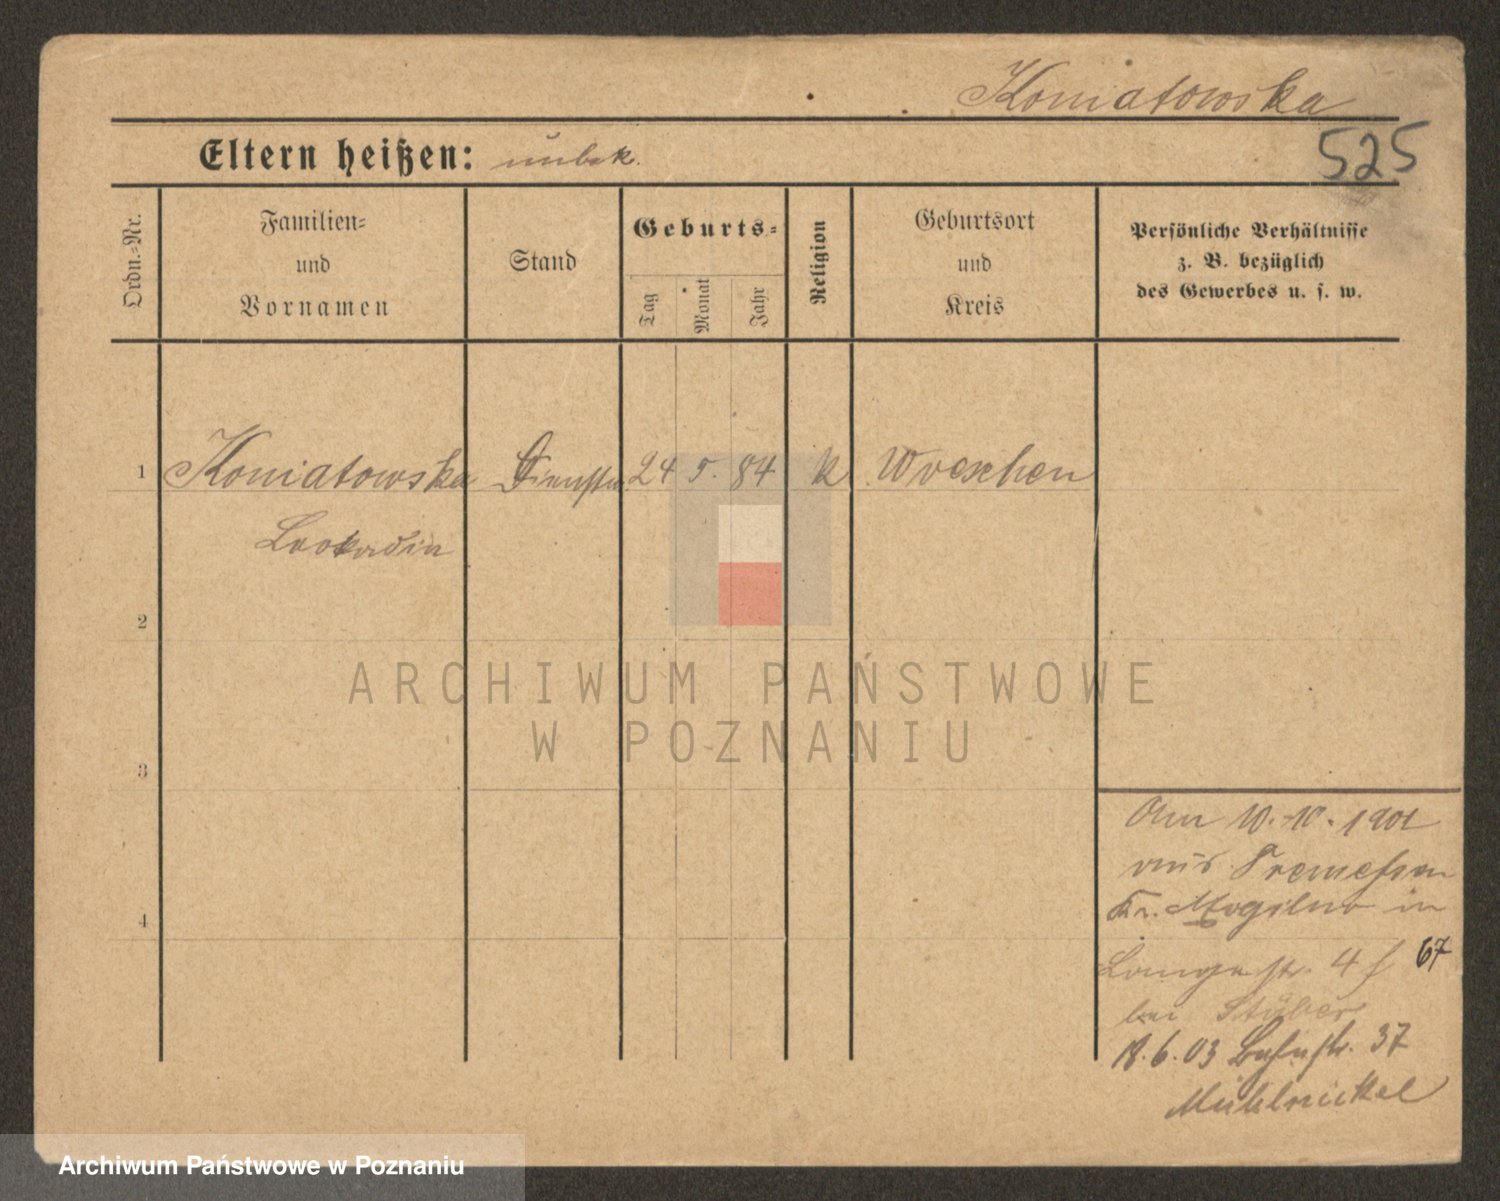 Koniatowska
525
Eltern heißen: unbek.
Ordn.-Nr.
Familien-
und
Vornamen
Stand
Geburts-
Tag
Monat
Jahr
Religion
Geburtsort
und
Kreis
Persönliche Verhältnisse
z. B. bezüglich
des Gewerbes u. s. w.
1 Koniatowska Dienstm. 24 5. 84 k Wreschen
Leokadia
2
3
4
Am 10. 10. 1901
aus Tremessen
Kr. Mogilno in
Langestr. 4 f 67
bei Stüber
18.6.03 Bahnstr. 37
Mühlnickel
ARCHIWUM PAŃSTWOWE
W POZNANIU
Archiwum Państwowe w Poznaniu